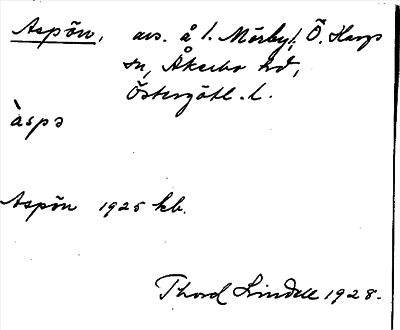 Aspön, avs. å l. Mörby, Ö. Hargs
sn, Åkerbo hd,
Östergötl. l.
àspə
Aspön 1925 kb.
Thord Lindell 1928.